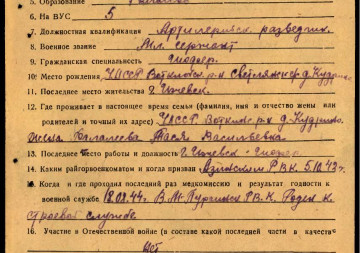 5. Образование
6. На ВУС 5
7. Должностная квалификация Артиллерийск. разведчик
8. Военное звание Мл. сержант
9. Гражданская специальность слесарь
10. Место рождения УАССР Воткинск. р-н д. Кудрино
11. Последнее место жительства г. Ижевск.
12. Где проживает в настоящее время семья (фамилия, имя и отчество жены или
родителей и точный их адрес) УАССР Воткинс. р-н д. Кудрино
жена Тася Васильевна
13. Последнее место работы и должность г. Ижевск - слесарь
14. Каким райгорвоенкоматом и когда призван РВК 5.10.42 г.
15. Когда и где проходил последний раз медкомиссию и результат годности к
военной службе 18.02.44 г. В.М. Пургинск. РВ-К. Годен к
строевой службе
16. Участие в Отечественной войне (в составе какой последней части в качестве
Нет